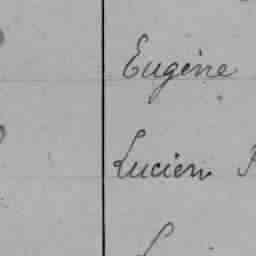 Eugène
Lucien